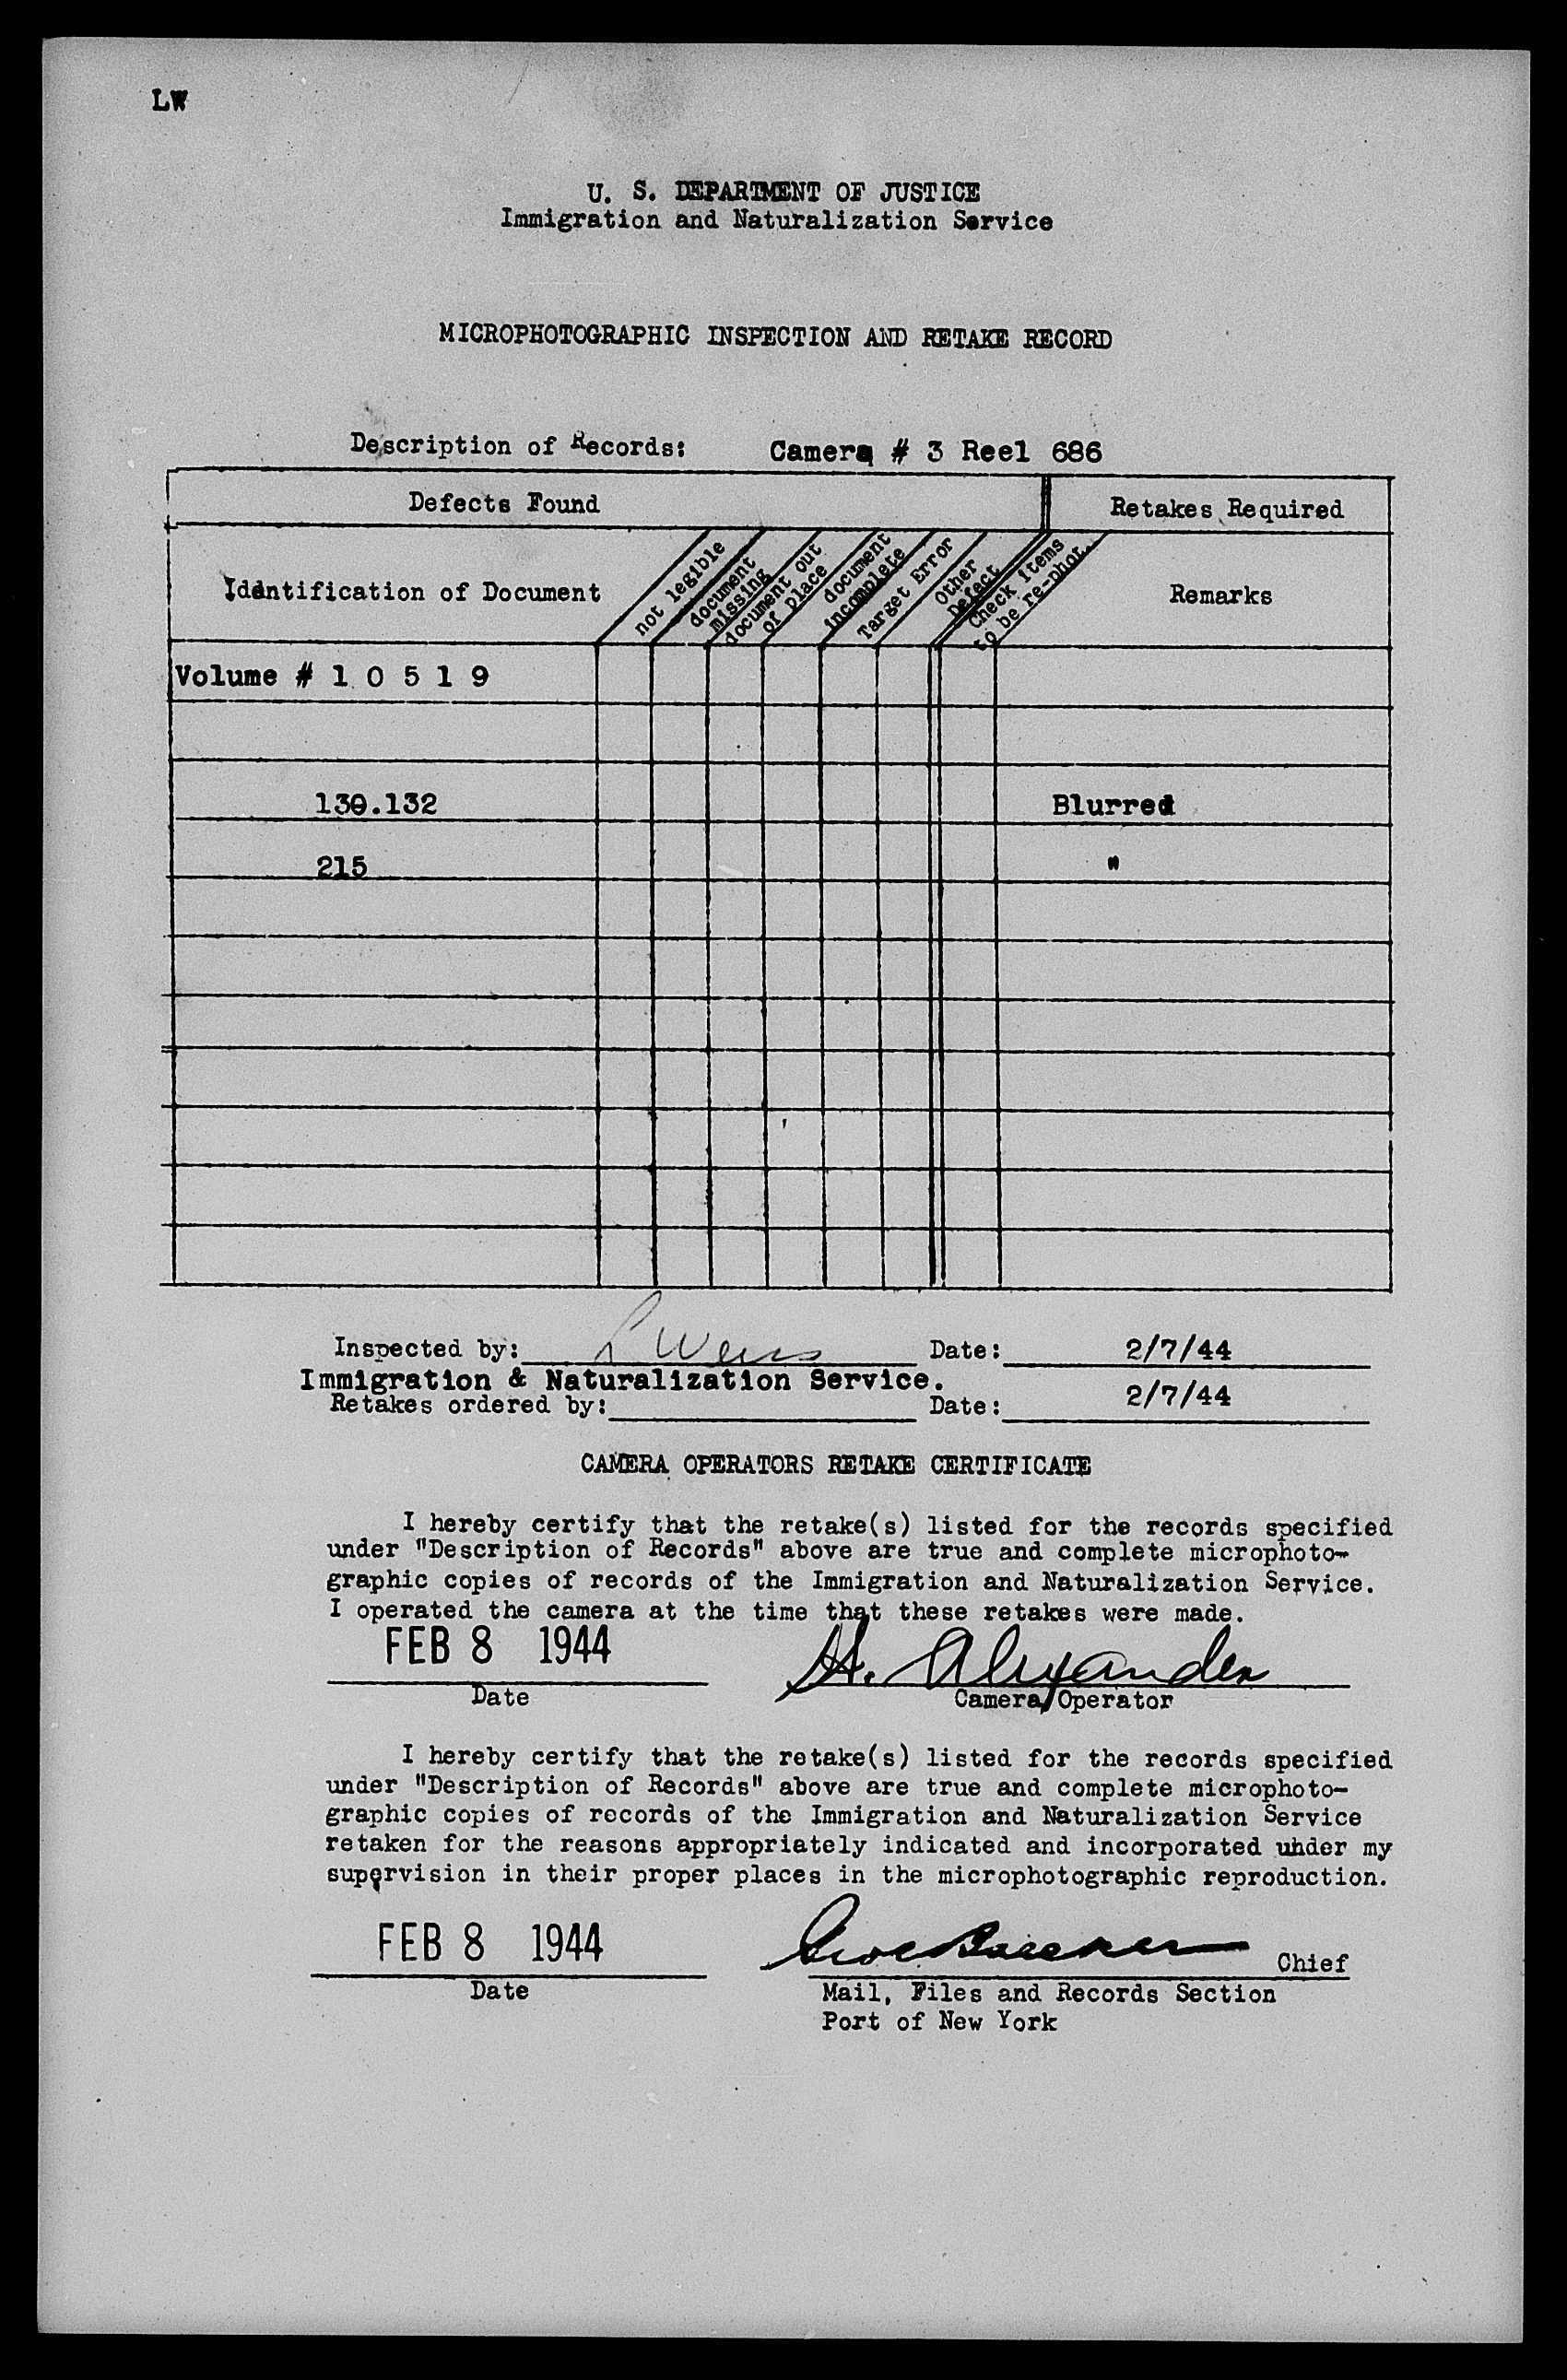 LW
U. S. DEPARTMENT OF JUSTICE
Immigration and Naturalization Service
MICROPHOTOGRAPHIC INSPECTION AND RETAKE RECORD
Description of Records: Camera # 3 Reel 686
Defects Found Retakes Required
Identification of Document
not legible
document missing
document out of place
document incomplete
Target Error
Other Defect
Check items to be re-phot.
Remarks
Volume # 1 0 5 1 9
130.132 Blurred
215 "
Inspected by: L Weiss Date: 2/7/44
Immigration & Naturalization Service.
Retakes ordered by: Date: 2/7/44
CAMERA OPERATORS RETAKE CERTIFICATE
I hereby certify that the retake(s) listed for the records specified
under "Description of Records" above are true and complete microphoto-
graphic copies of records of the Immigration and Naturalization Service.
I operated the camera at the time that these retakes were made.
FEB 8 1944 H. Alexander
Date Camera Operator
I hereby certify that the retake(s) listed for the records specified
under "Description of Records" above are true and complete microphoto-
graphic copies of records of the Immigration and Naturalization Service
retaken for the reasons appropriately indicated and incorporated under my
supervision in their proper places in the microphotographic reproduction.
FEB 8 1944 Chief
Date Mail, Files and Records Section
Port of New York